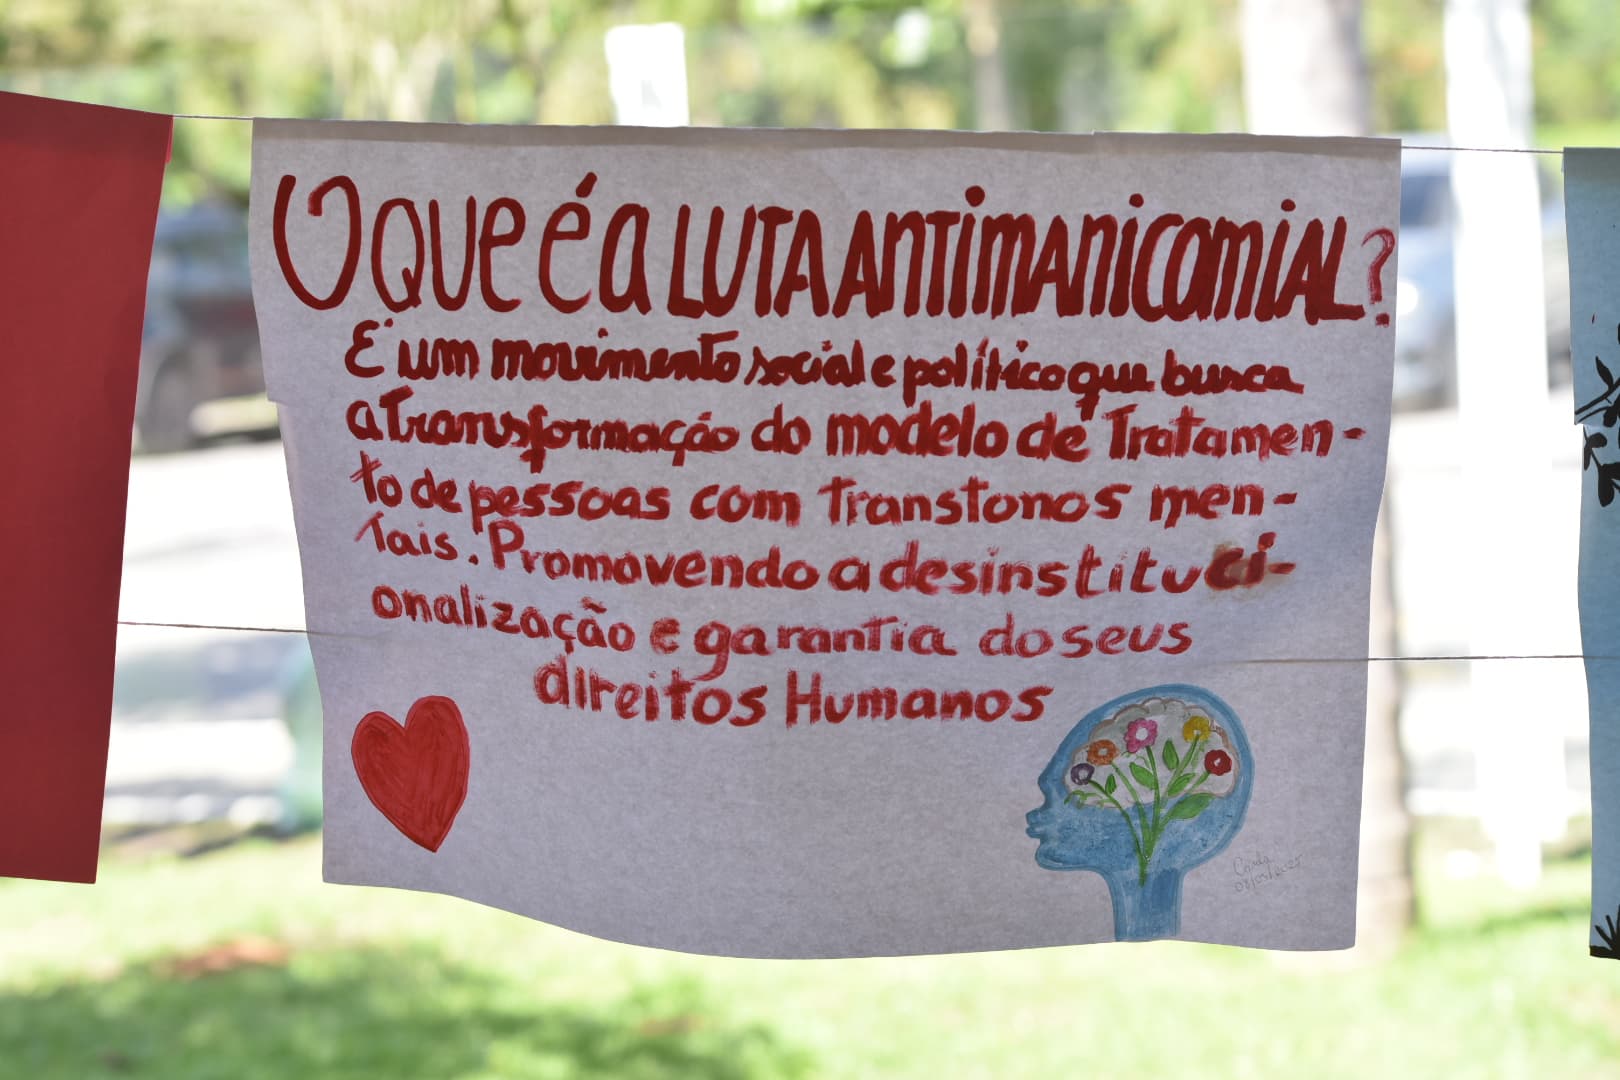 O QUE É A LUTA ANTIMANICOMIAL?
É um movimento social e político que busca
a Transformação do modelo de Tratamen-
to de pessoas com Transtonos men-
Tais. Promovendo a desinstituci-
onalização e garantia do seus
direitos Humanos